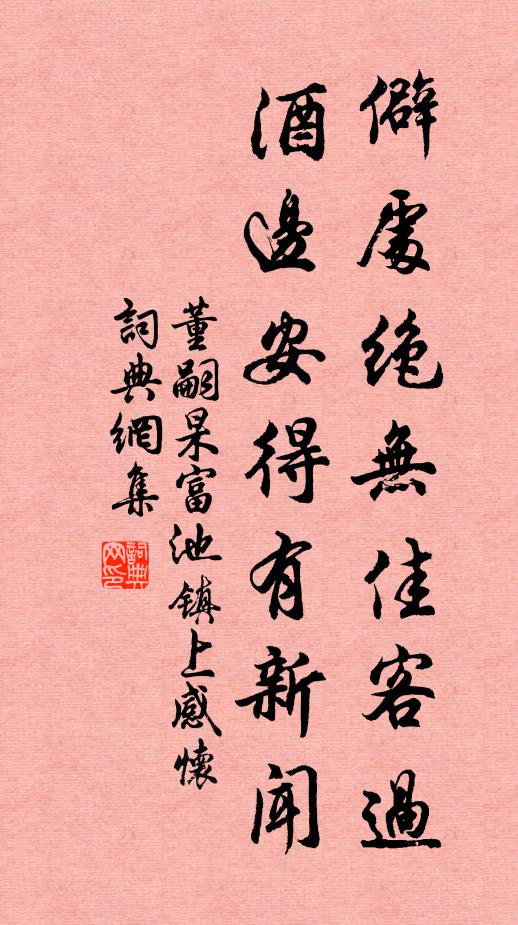 僻處絕無佳客過
酒邊安得有新聞
董嗣杲富池镇上感懷
詞典網集
詞典网印